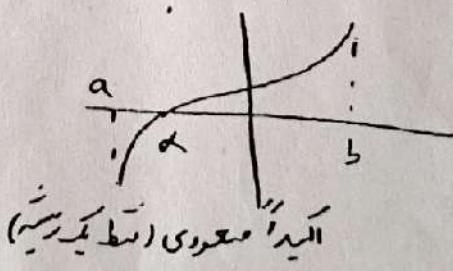 a
α
b
اکیداً صعودی (فقط یک ریشه)